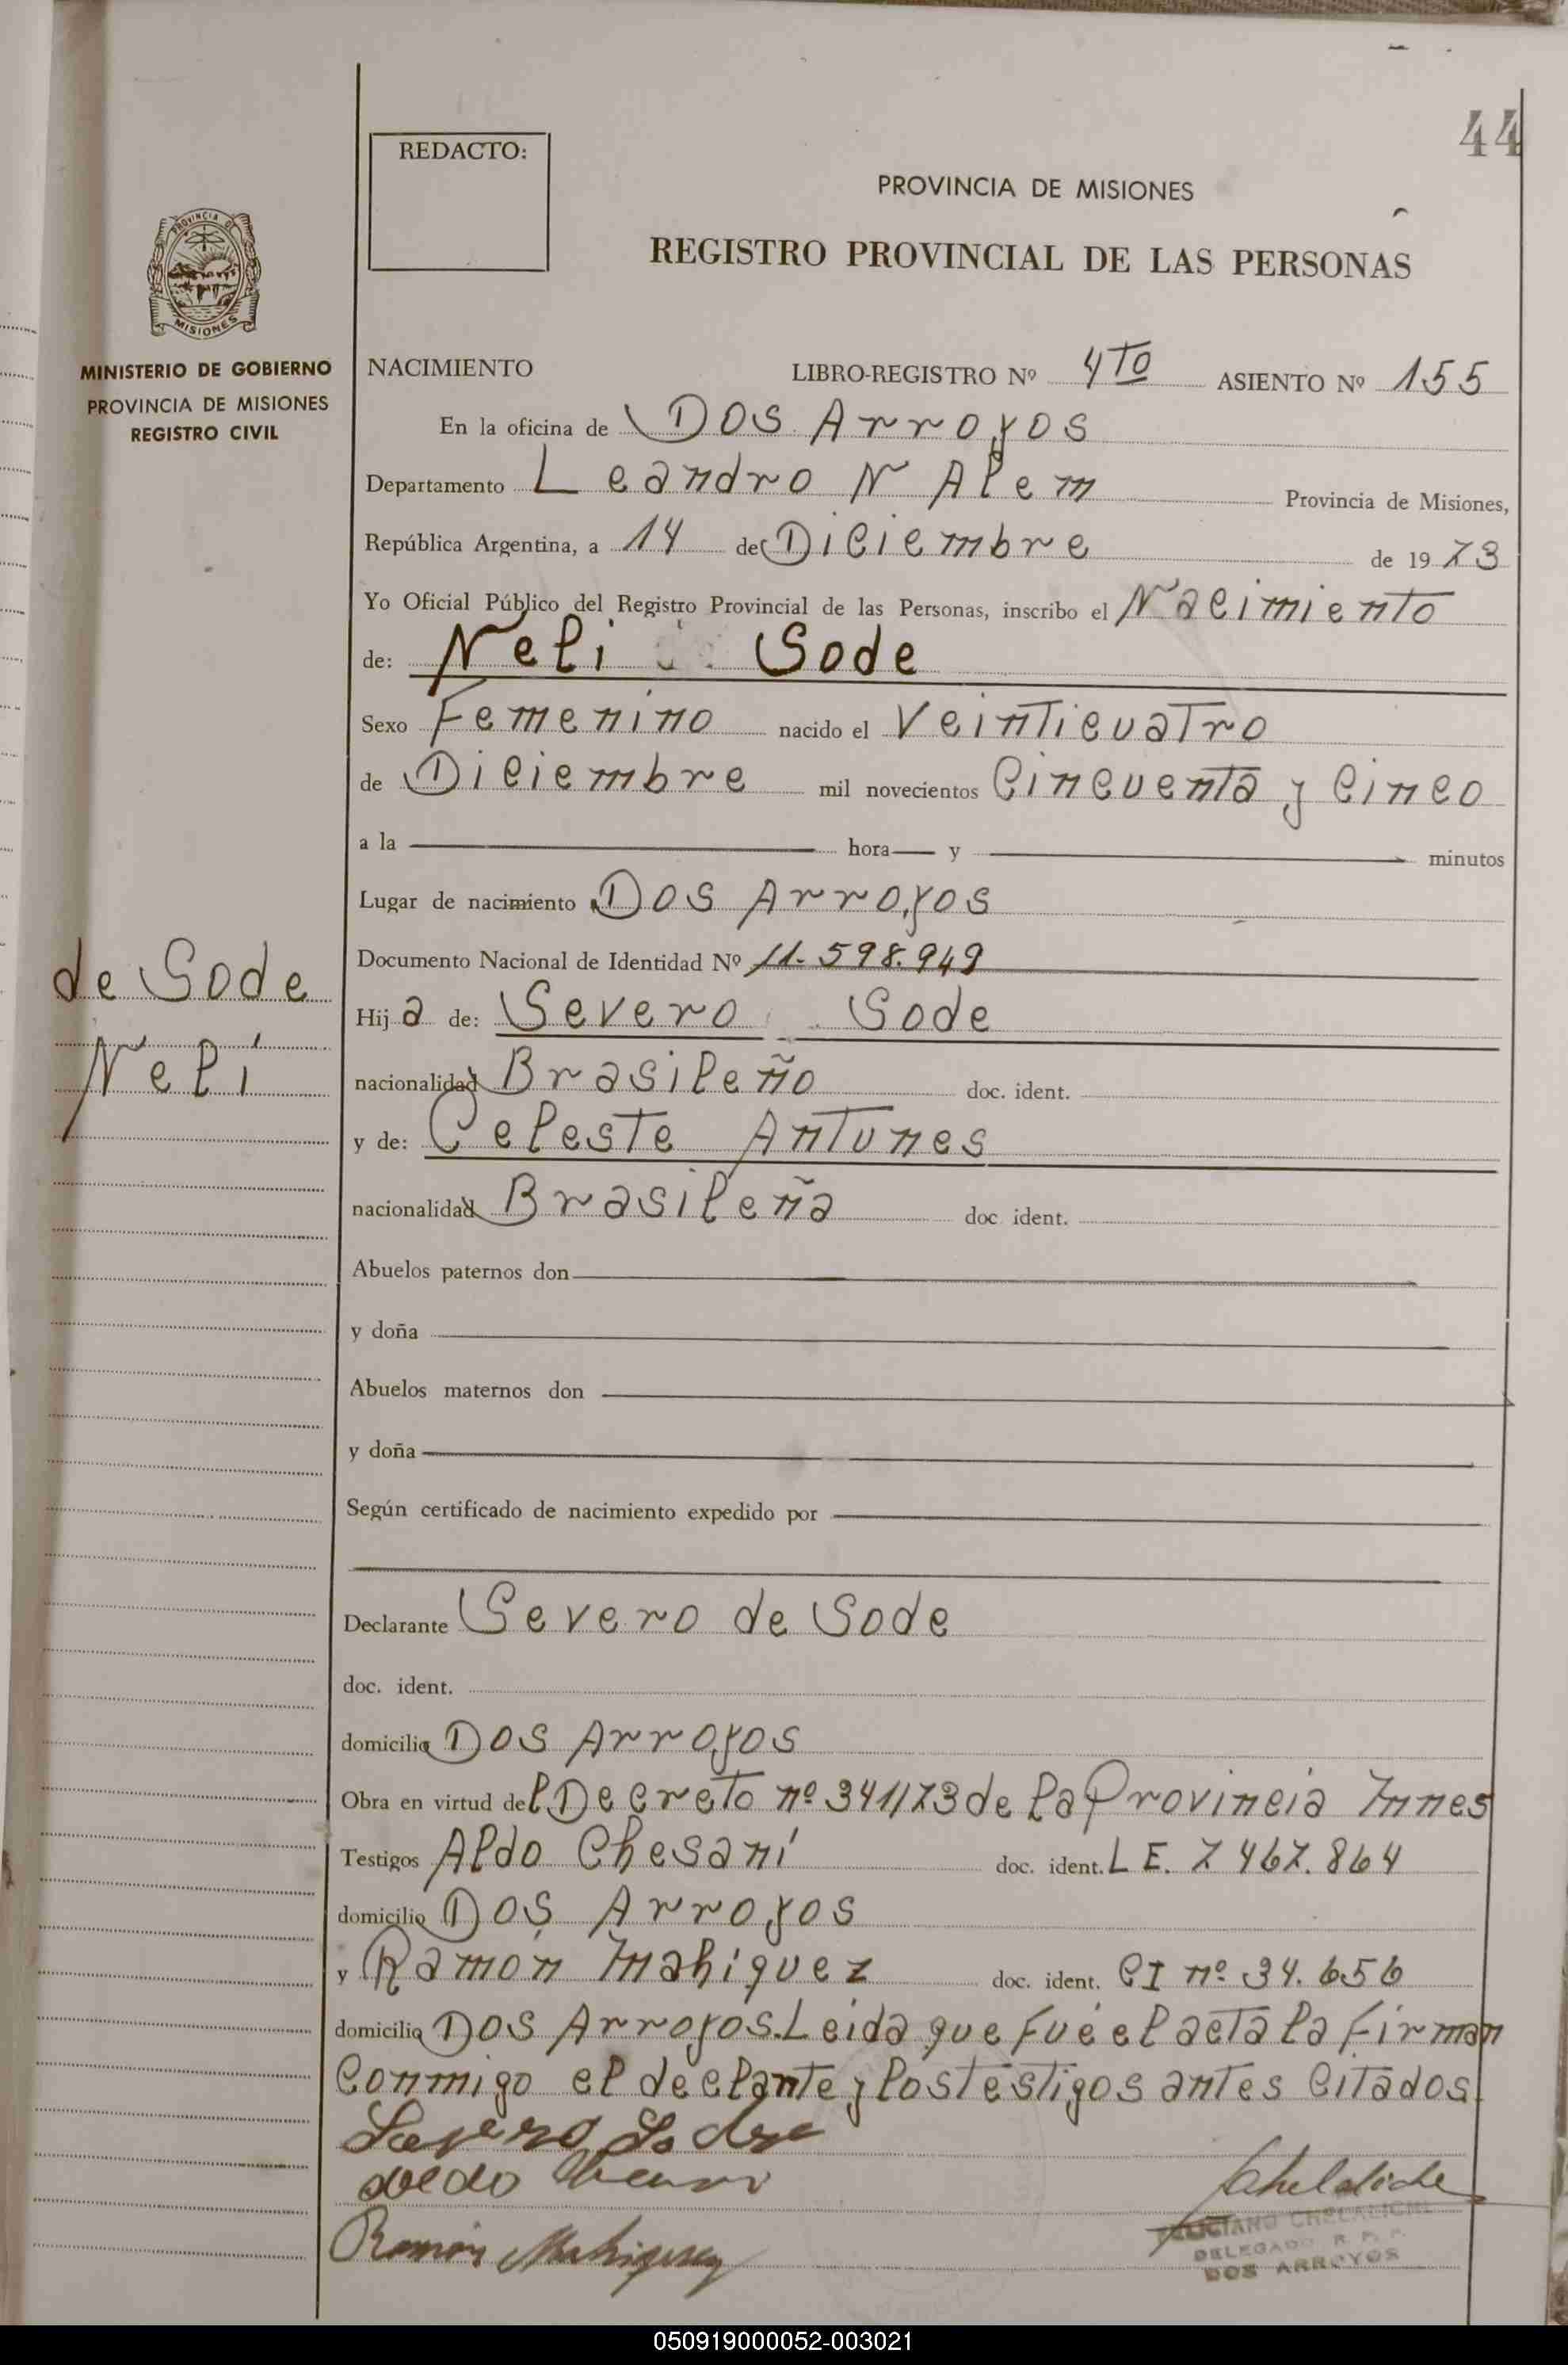 44
REDACTO:
PROVINCIA DE MISIONES
REGISTRO PROVINCIAL DE LAS PERSONAS
PROVINCIA DE
MISIONES
MINISTERIO DE GOBIERNO
PROVINCIA DE MISIONES
REGISTRO CIVIL
NACIMIENTO LIBRO-REGISTRO Nº 4TO ASIENTO Nº 155
En la oficina de Dos Arroyos
Departamento Leandro N Alem Provincia de Misiones,
República Argentina, a 14 de Diciembre de 1973
Yo Oficial Público del Registro Provincial de las Personas, inscribo el Nacimiento
de: Neli Sode
Sexo Femenino nacido el Veinticuatro
de Diciembre mil novecientos Cincuenta y Cinco
a la hora y minutos
Lugar de nacimiento Dos Arroyos
Documento Nacional de Identidad Nº 11.598.949
de Sode
Nelí
Hija de: Severo Sode
nacionalidad Brasileño doc. ident.
y de: Celeste Antunes
nacionalidad Brasileña doc ident.
Abuelos paternos don
y doña
Abuelos maternos don
y doña
Según certificado de nacimiento expedido por
Declarante Severo de Sode
doc. ident.
domicilio Dos Arroyos
Obra en virtud del Decreto nº 341/73 de la Provincia Mnes
Testigos Aldo Chesaní doc. ident. L E. 7467.864
domicilio Dos Arroyos
y Ramón Mahiquez doc. ident. CI nº 34.656
domicilio Dos Arroyos. Leída que fué el acta la firman
Conmigo el declante y los testigos antes Citados
Ramón Mahiquez
FELICIANO CHELALICHE
DELEGADO R. P. P.
DOS ARROYOS
050919000052-003021